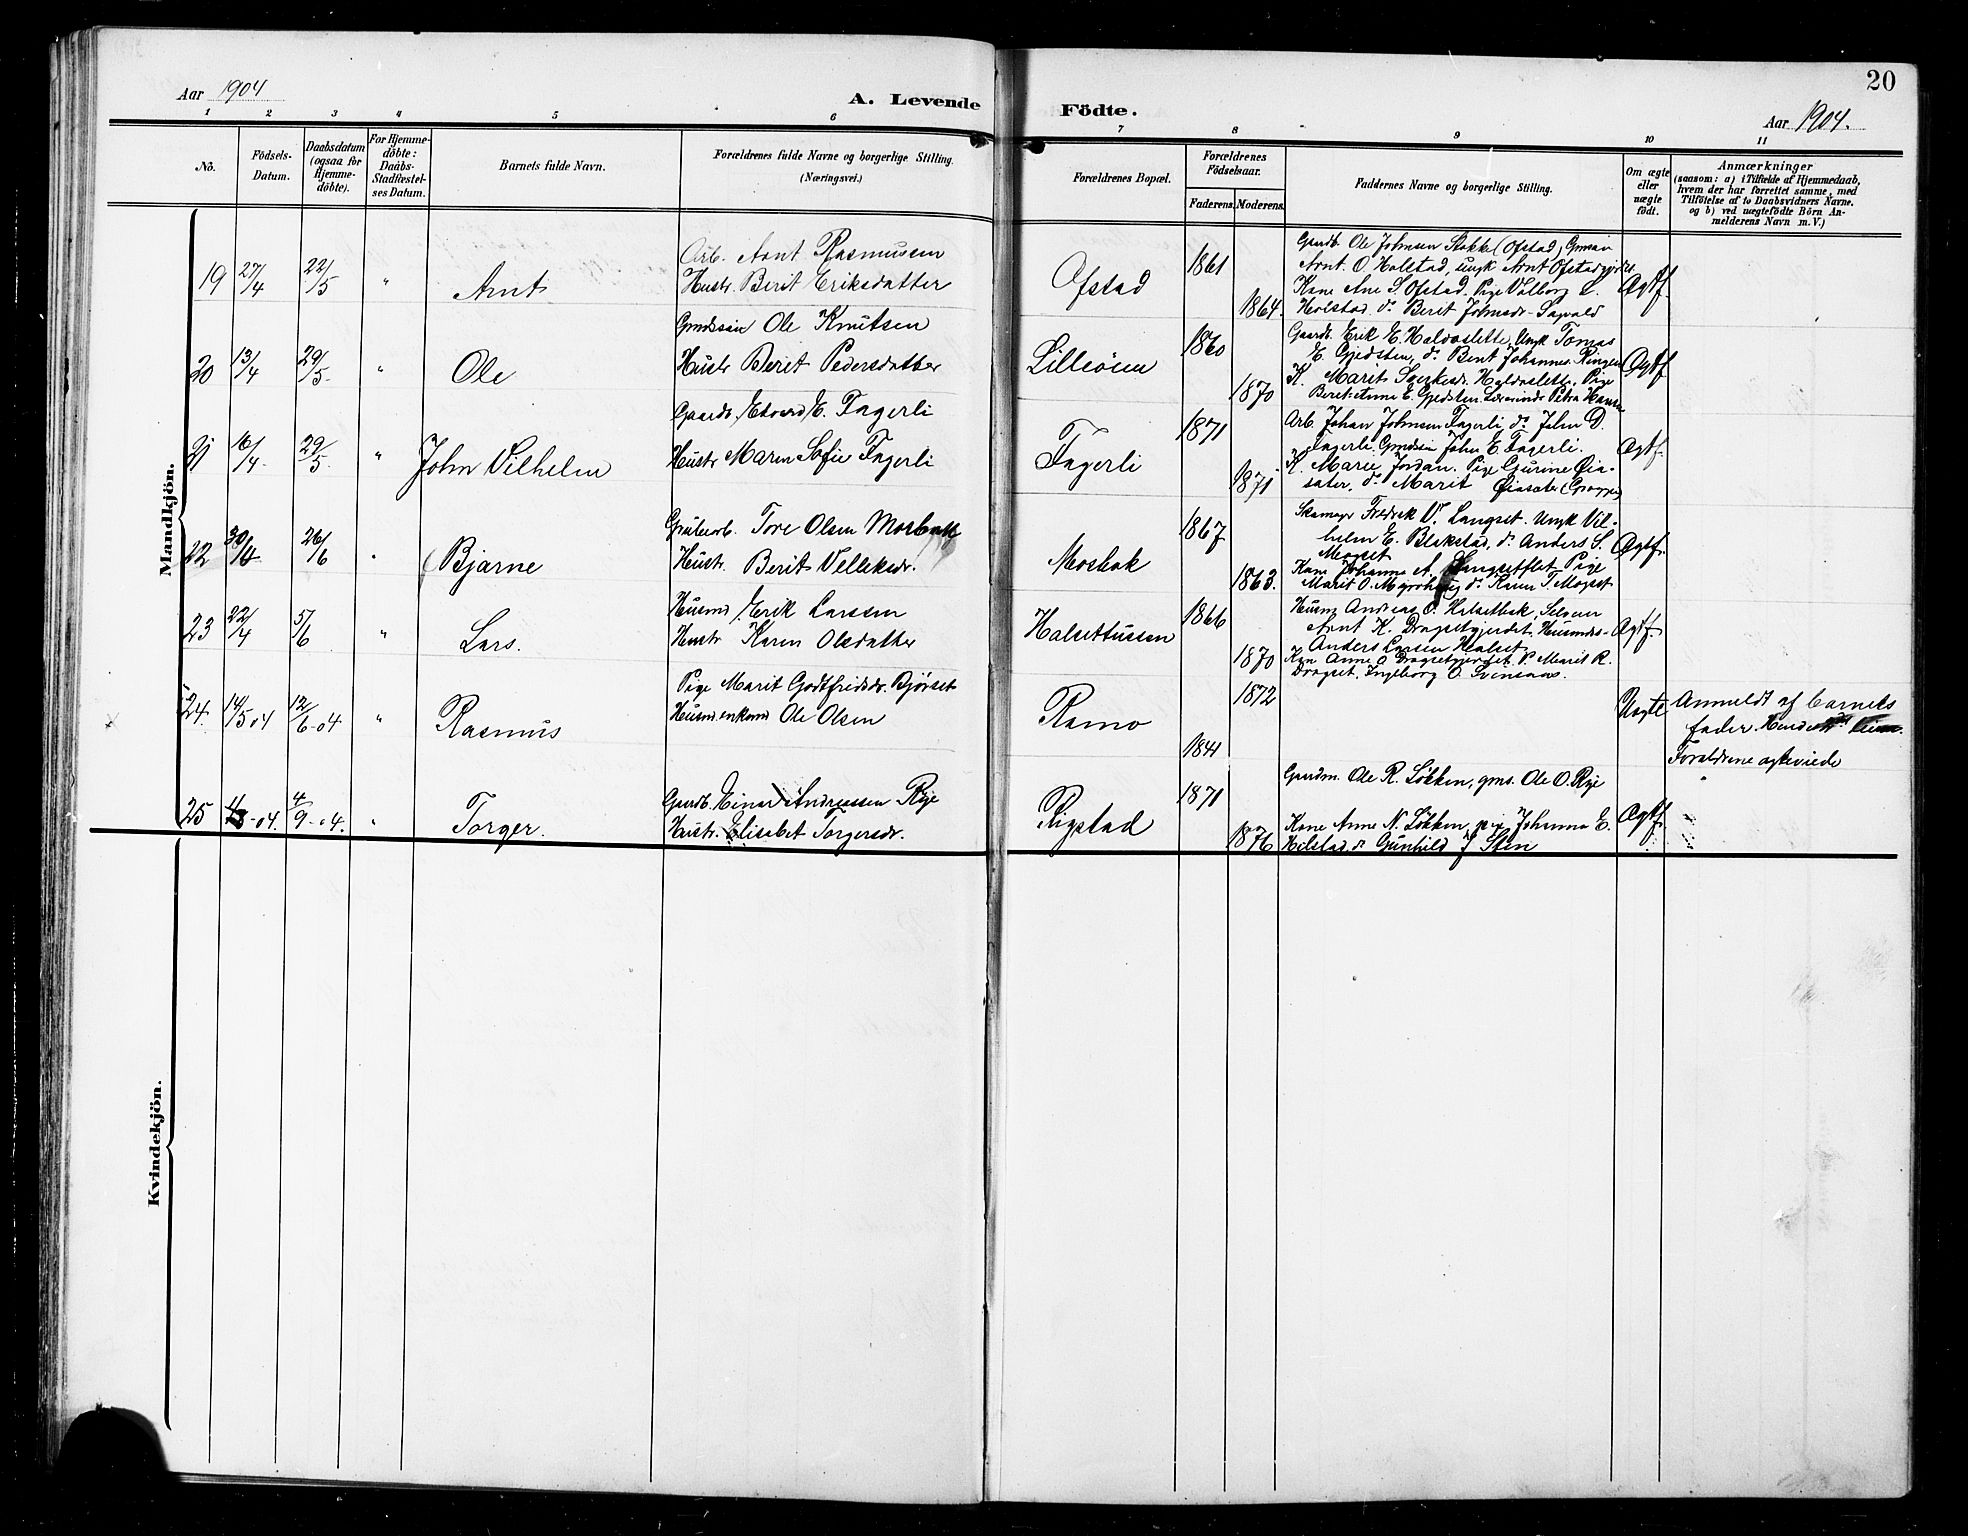 20
Aar 1904
A. Levende
Födte.
Aar 1904.
1 2 3 4 5 6
7 8 9 10 11
No.
Födsels-
Datum.
Daabsdatum
(ogsaa for
Hjemme-
döbte).
For Hjemme-
döbte:
Daabs-
Stadfæstel-
ses Datum.
Barnets fulde Navn.
Forældrenes fulde Navne og borgerlige Stilling.
(Næringsvei.)
Forældrenes Bopæl.
Forældrenes
Födselsaar.
Faderens.
Moderens.
Faddernes Navne og borgerlige Stilling.
Om ægte
eller
uægte
födt.
Anmærkninger
(saasom: a) i Tilfælde af Hjemmedaab,
hvem der har forrettet samme, med
Tilföielse af to Daabsvidners Navne.
og b) ved uægtefödte Börn An-
melderens Navn m. V.)
Mandkjön.
19 27/4 22/5 " Arnt
Arb. Arnt Rasmussen
Hustr. Berit Eriksdatter
Ofstad 1861 1864
Gaardb. Ole Johnsen Stokke (Ofstad)
Arnt O Holstad, ungk Arnt Ofstadgjerdet
Kone Ane S. Ofstad. Pige Valborg L.
Holstad do Berit Johnsdr. Sagvold
Ægtf.
20 13/4 29/5 " Ole
Gmdssøn Ole Knutsen
Hustr Beret Pedersdatter
Lilleöien 1860 1870
Gaardb. Erik E. Haldoslette, Ungk Tomas
E. Gjedsten, do Bent Johannes. Ringen
K. Marit Haldoslette, Pige
Beret-Anne E. Gjedsten. Lærerinde Petra Hansen
Ægtf
21 16/4 29/5 " John Vilhelm
Gaardb. Edvard E. Fagerli
Hustr Maren Sofie Fagerli
Fagerli 1871 1871
Arb. Johan Johnsen Fagerli do John D.
Fagerli. Gmdssøn John E. Fagerli.
K. Marie Jordan. Pige Gurine Øia-
sæter, do Marit Øiasæter
Ægtf.
22 30/4 26/6 " Bjarne
Grubearb. Tore Olsen Mosbak
Hustr. Berit Velleksdr.
Mosbak 1867 1863.
Skomagr Fredrik V. Langset. Ungk Vil-
helm E. Blekstad, do Anders S.
Mogset
Kone Johanna A. Langsetflet Pige
Marit O. do Karen T. Mogset
Ægtf.
23 22/4 5/6 " Lars.
Husmd. Erik Larssen
Hustr Karen Olsdatter
Halsettussen 1866 1870
Husm Andreas O. Halsetbak, Selveier
Arnt K. Dragsetgjerdet, Husmds-
Anders Larsen Halset
Kon Anne O Dragsetgjerdet P. Marit R.
Dragset, Ingeborg O. Svensaas.
Ægtf.
24. 14/5 04 12/6-04 " Rasmus
Pige Marit Godtfridsdr. Bjørset
Husmd.enkemd Ole Olsen
Ramo 1872 1841
Uægte
Anmeldt af barnets
fader.
Forældrene ægteviede
25 -04. 4/9-04. " Torger.
Gaardb. Einar Andreassen Rye
Hustr. Elisabet Torgersdr.
Rigstad 1871 1876
Gaardm. Ole R. Løkken, gms. Ole O. Rye
Kone Anne N. Løkken, pige Johanna E.
Helstad do Gunhild J Sten
Ægtf.
Kvindekjön.